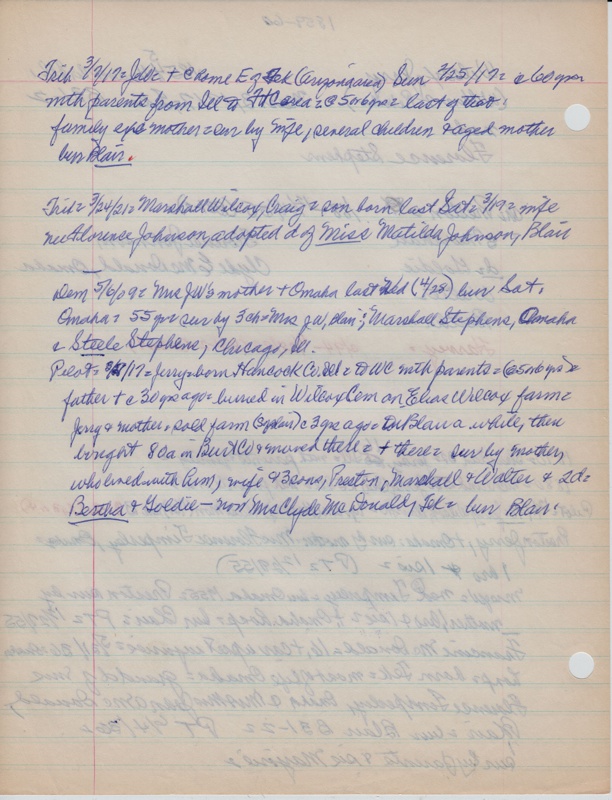 Trib 3/7/17= + c home E of Tek (Arizona area) Sun 2/25/17= c 60 yrs
with parents from Ill to area = @ 5 or 6 yrs = last of that
family exc mother = sur by wife, several children & aged mother
bur Blair.
Trib = 3/24/21 = Marshall Wilcox, Craig = son born last Sat = 3/19 = wife
nee Florence Johnson, adopted d of Miss Matilda Johnson, Blair
Dem 5/6/09 = Mrs JW's mother + Omaha last Wed (4/28) bur Sat,
Omaha = 55 yrs sur by 3 ch = Mrs JW, Blair; Marshall Stephens, Omaha
& Steele Stephens, Chicago, Ill.
Pilot = /17 = Jerry = born Hancock Co. Ill = D WC with parents = (@ 5 or 6 yrs) =
father + c 30 yrs ago = buried in Wilcox Cem on Elias Wilcox farm =
Jerry & mother, sold farm c 3 yrs ago = Blair a while, then
bought 80a in Burt Co & moved there = + there = sur by mother,
who lived with him, wife & 3 sons, Preston, Marshall & Walter & 2 d =
Bertha & Goldie — now Mrs Clyde McDonald, Tek = bur Blair.